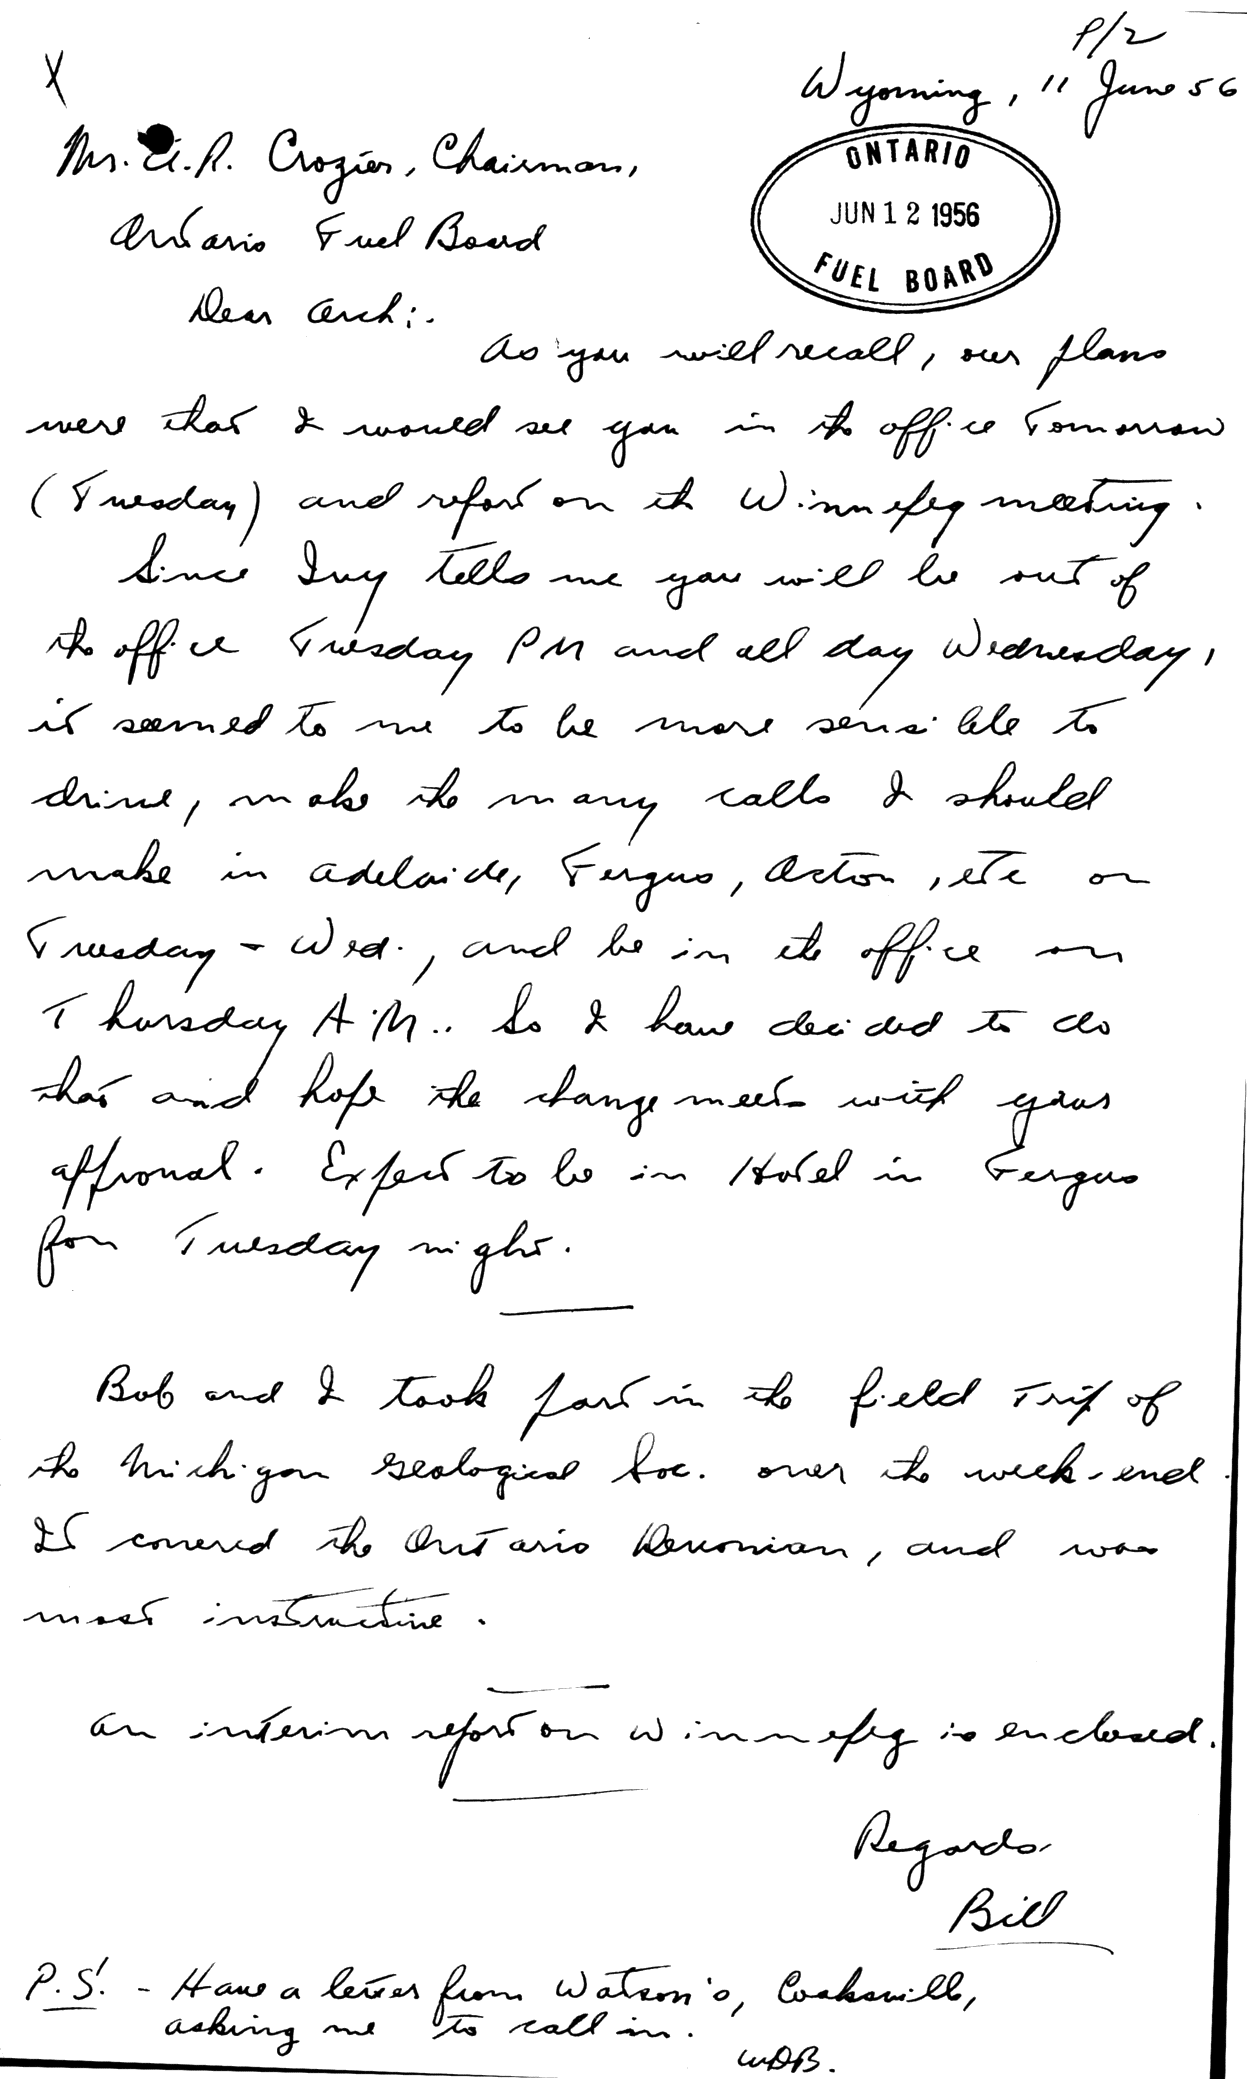 P/2
X
Wyoming, 11 June 56
Mr. A.R. Crozier, Chairman,
Ontario Fuel Board
ONTARIO
JUN 12 1956
FUEL BOARD
Dear Arch:.
As you will recall, our plans
were that I would see you in the office Tomorrow
(Tuesday) and report on the Winnipeg meeting.
Since Ivy tells me you will be out of
the office Tuesday PM and all day Wednesday,
it seemed to me to be more sensible to
drive, make the many calls I should
make in Adelaide, Fergus, Acton, etc on
Tuesday - Wed., and be in the office on
Thursday A.M.. So I have decided to do
that and hope the change meets with your
approval. Expect to be in Hotel in Fergus
for Tuesday night.
Bob and I took part in the field Trip of
the Michigan Geological Soc. over the week-end.
It covered the Ontario Devonian, and was
most instructive.
An interim report on Winnipeg is enclosed.
Regards,
Bill
P.S. - Have a letter from Watson's, Cooksville,
asking me to call in.
WDB.